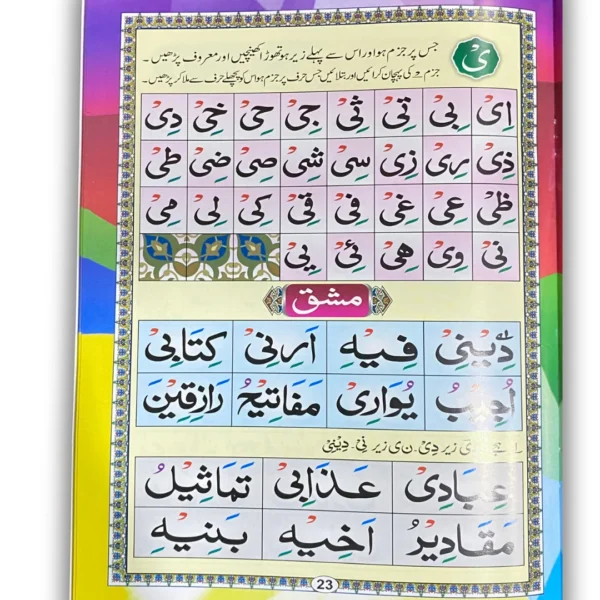 یْ
جس پر جزم ہو اور اس سے پہلے زیر ہو تو تھوڑا کھینچیں اور معروف پڑھیں۔
جزم کی پہچان کرائیں اور بتلائیں جس حرف پر جزم ہو اس کو پچھلے حرف سے ملا کر پڑھیں۔
اِیْ بِیْ تِیْ ثِیْ جِیْ حِیْ خِیْ دِیْ
ذِیْ رِیْ زِیْ سِیْ شِیْ صِیْ ضِیْ طِیْ
ظِیْ عِیْ غِیْ فِیْ قِیْ کِیْ لِیْ مِیْ
نِیْ وِیْ هِیْ ئِیْ یِیْ
مشق
دِیْنِیْ فِیْهِ اَرِنِیْ کِتَابِیْ
اُجِیْبُ یُوَارِیْ مَفَاتِیْحُ رَازِقِیْنَ
زیر دِیْ۔ ن ی زیر نِیْ۔ دِیْنِیْ
عِبَادِیْ عَذَابِیْ تَمَاثِیْلُ
مَقَادِیْرُ اَخِیْهِ بَنِیْهِ
23